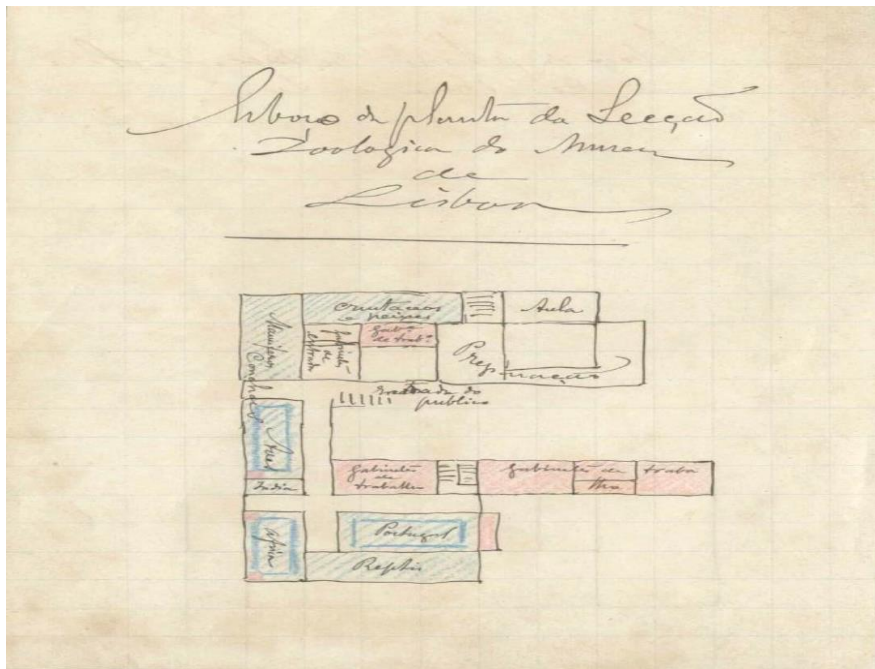 Esboço da planta da Secção
Zoologica do Museu
de
Lisboa
Crustaceos
e peixes
Aula
Mamiferos
Conchas
Aves
Gab.e
de trab.o
de
entrada
Preparação
Entrada do
publico
India
Gabinetes
de
trabalho
Gabinetes de traba
lho
Africa
Portugal
Reptis